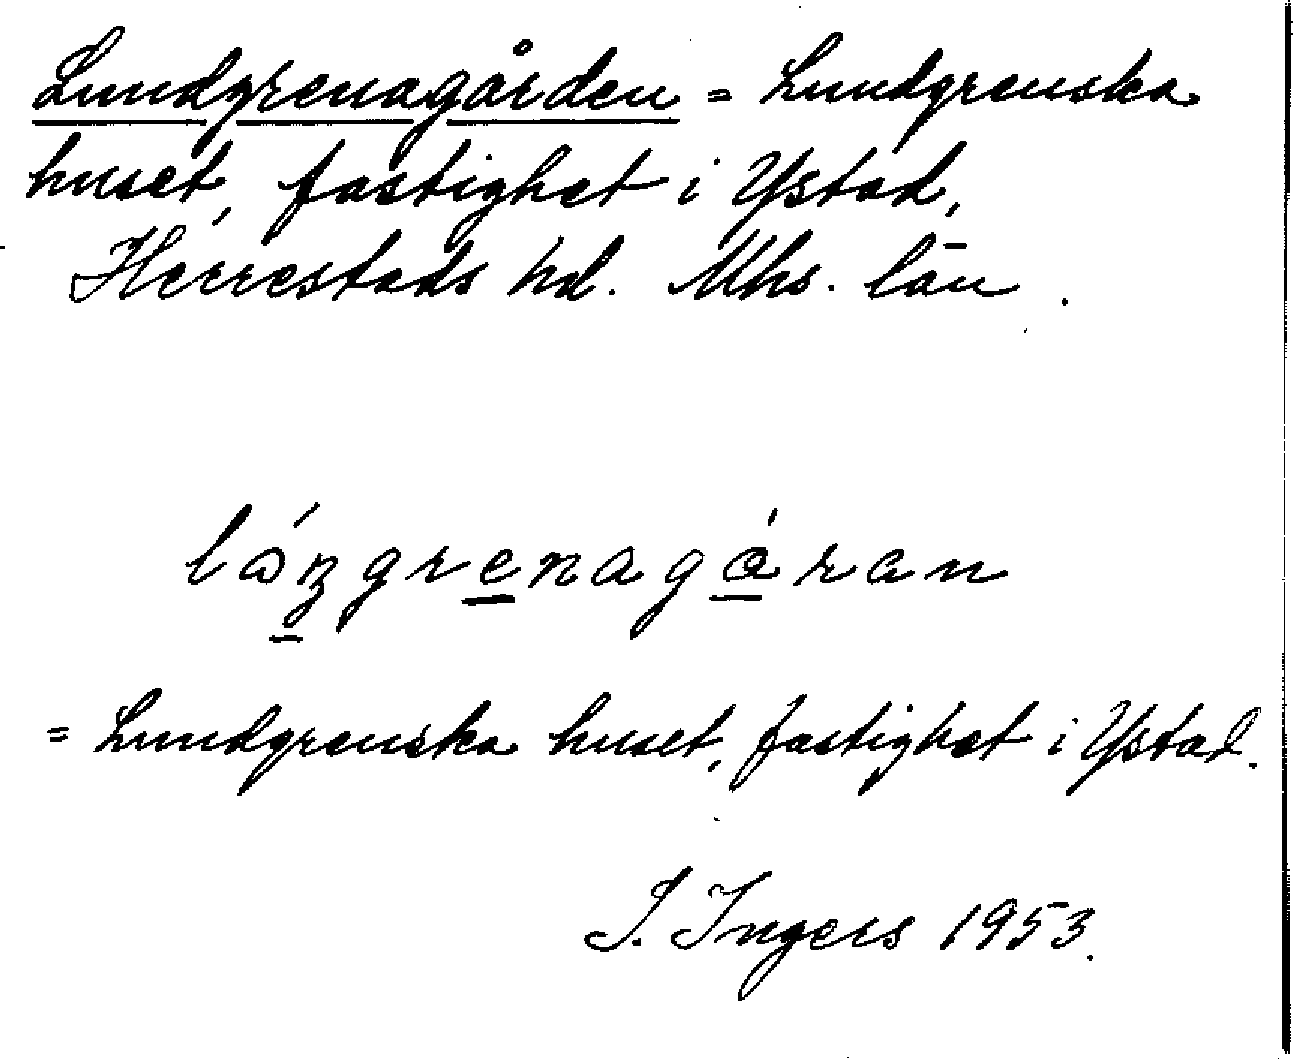 Lundgrenagården = Lundgrenska
huset, fastighet i Ystad,
Herrestads hd. Mhs. län.
= Lundgrenska huset, fastighet i Ystad.
I. Ingers 1953.